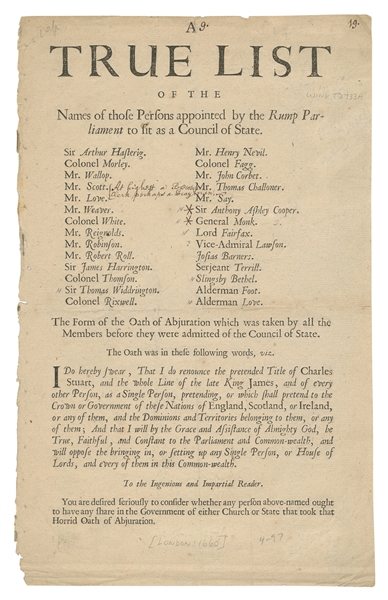 A 9.
19.
TRUE LIST
OF THE
Names of those Persons appointed by the Rump Par-
liament to sit as a Council of State.
Sir Arthur Haslerig.
Colonel Morley.
Mr. Wallop.
Mr. Scott.
Mr. Love.
Mr. Weaver.
Colonel White.
Mr. Reignolds.
Mr. Robinson.
Mr. Robert Roll.
Sir James Harrington.
Colonel Thomson.
Sir Thomas Widdrington.
Colonel Rixwell.
Mr. Henry Nevil.
Colonel Fagg.
Mr. John Corbet.
Mr. Thomas Challoner.
Mr. Say.
* Sir Anthony Ashley Cooper.
* General Monk.
Lord Fairfax.
Vice-Admiral Lawson.
Josias Barners.
Serjeant Terrill.
Slingsby Bethel.
Alderman Foot.
Alderman Love.
The Form of the Oath of Abjuration which was taken by all the
Members before they were admitted of the Council of State.
The Oath was in these following words, viz.
I Do hereby swear, That I do renounce the pretended Title of Charles
Stuart, and the whole Line of the late King James, and of every
other Person, as a Single Person, pretending, or which shall pretend to the
Crown or Government of these Nations of England, Scotland, or Ireland,
or any of them, and the Dominions and Territories belonging to them, or any
of them; And that I will by the Grace and Assistance of Almighty God, be
True, Faithful, and Constant to the Parliament and Common-wealth, and
will oppose the bringing in, or setting up any Single Person, or House of
Lords, and every of them in this Common-wealth.
To the Ingenious and Impartial Reader.
You are desired seriously to consider whether any person above-named ought
to have any share in the Government of either Church or State that took that
Horrid Oath of Abjuration.
[LONDON 1660]
4-97